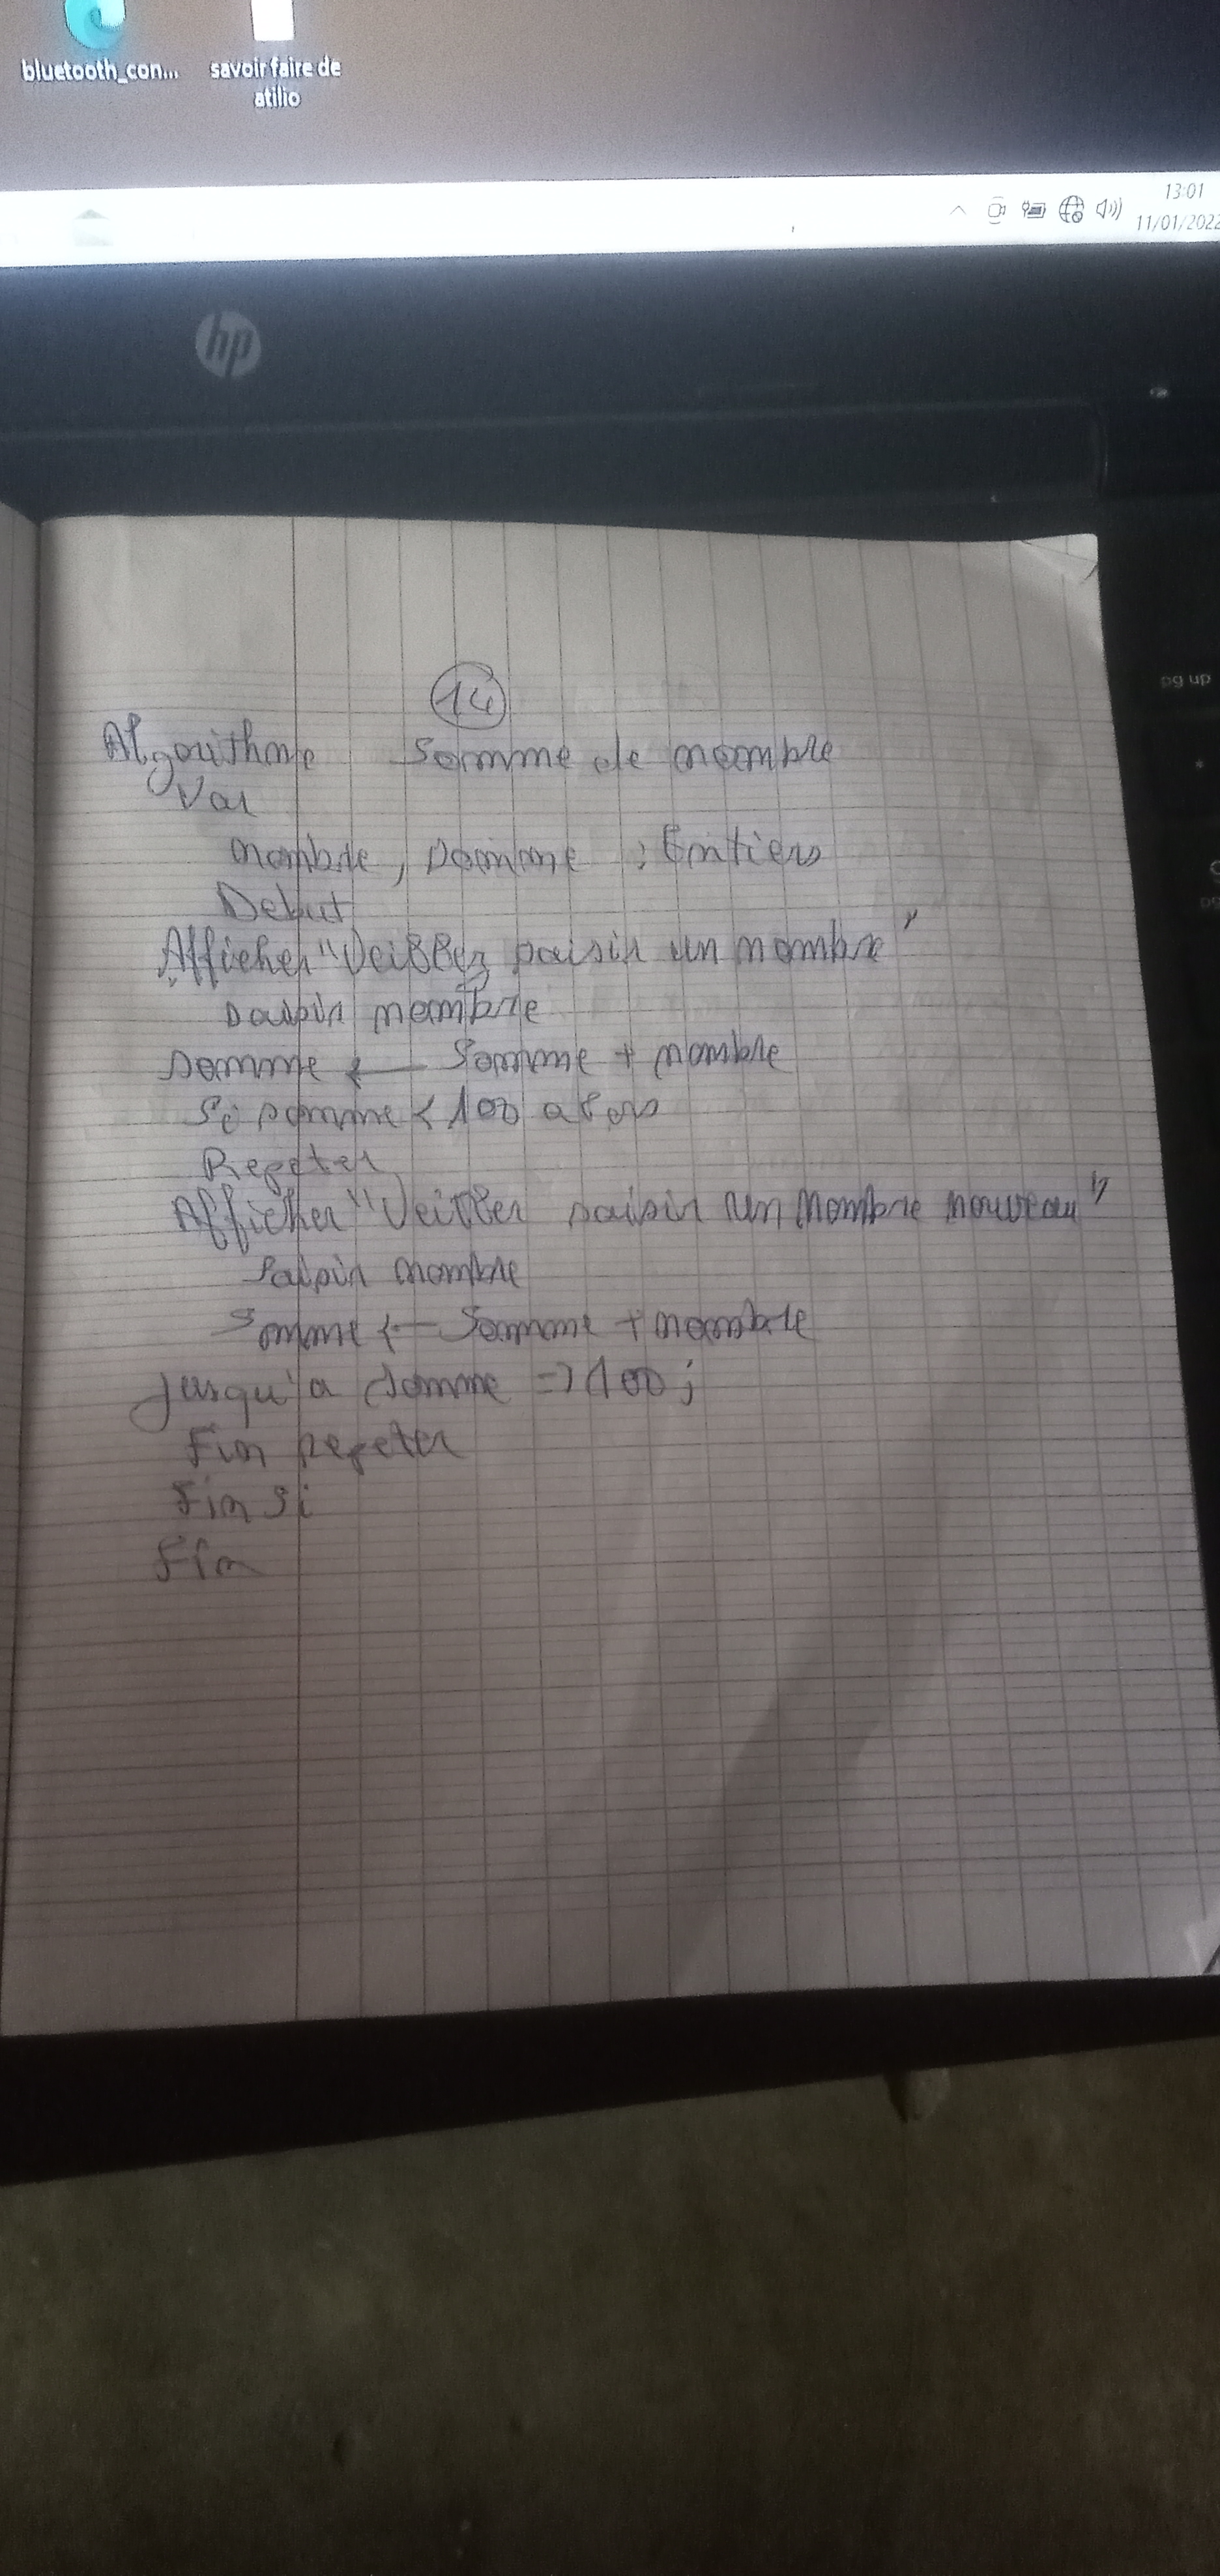 bluetooth_con... savoir faire de
atilio
13:01
11/01/2022
hp
pg up
14
Algorithme Somme de nombre
Var
nombre, somme : Entiers
Debut
Afficher "Veillez saisir un nombre"
saisir nombre
somme ← Somme + nombre
Si somme < 100 alors
Repeter
Afficher "Veiller saisir un nombre nouveau"
Saisir nombre
Somme ← Somme + nombre
jusqu'a somme => 100;
Fin repeter
Fin Si
Fin